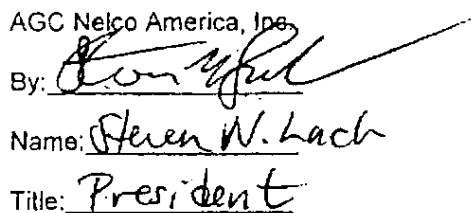 AGC Nelco America, Inc.
By:
Name: Steven W. Lach
Title: President